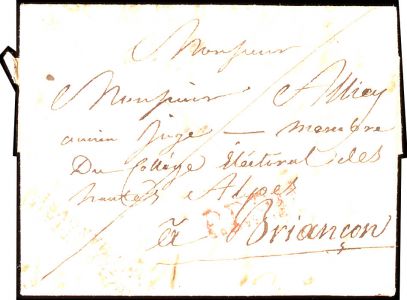 Monsieur
Monsieur Alliey
ancien Juge — membre
Du Collège Electoral des
hautes Alpes
à Briançon